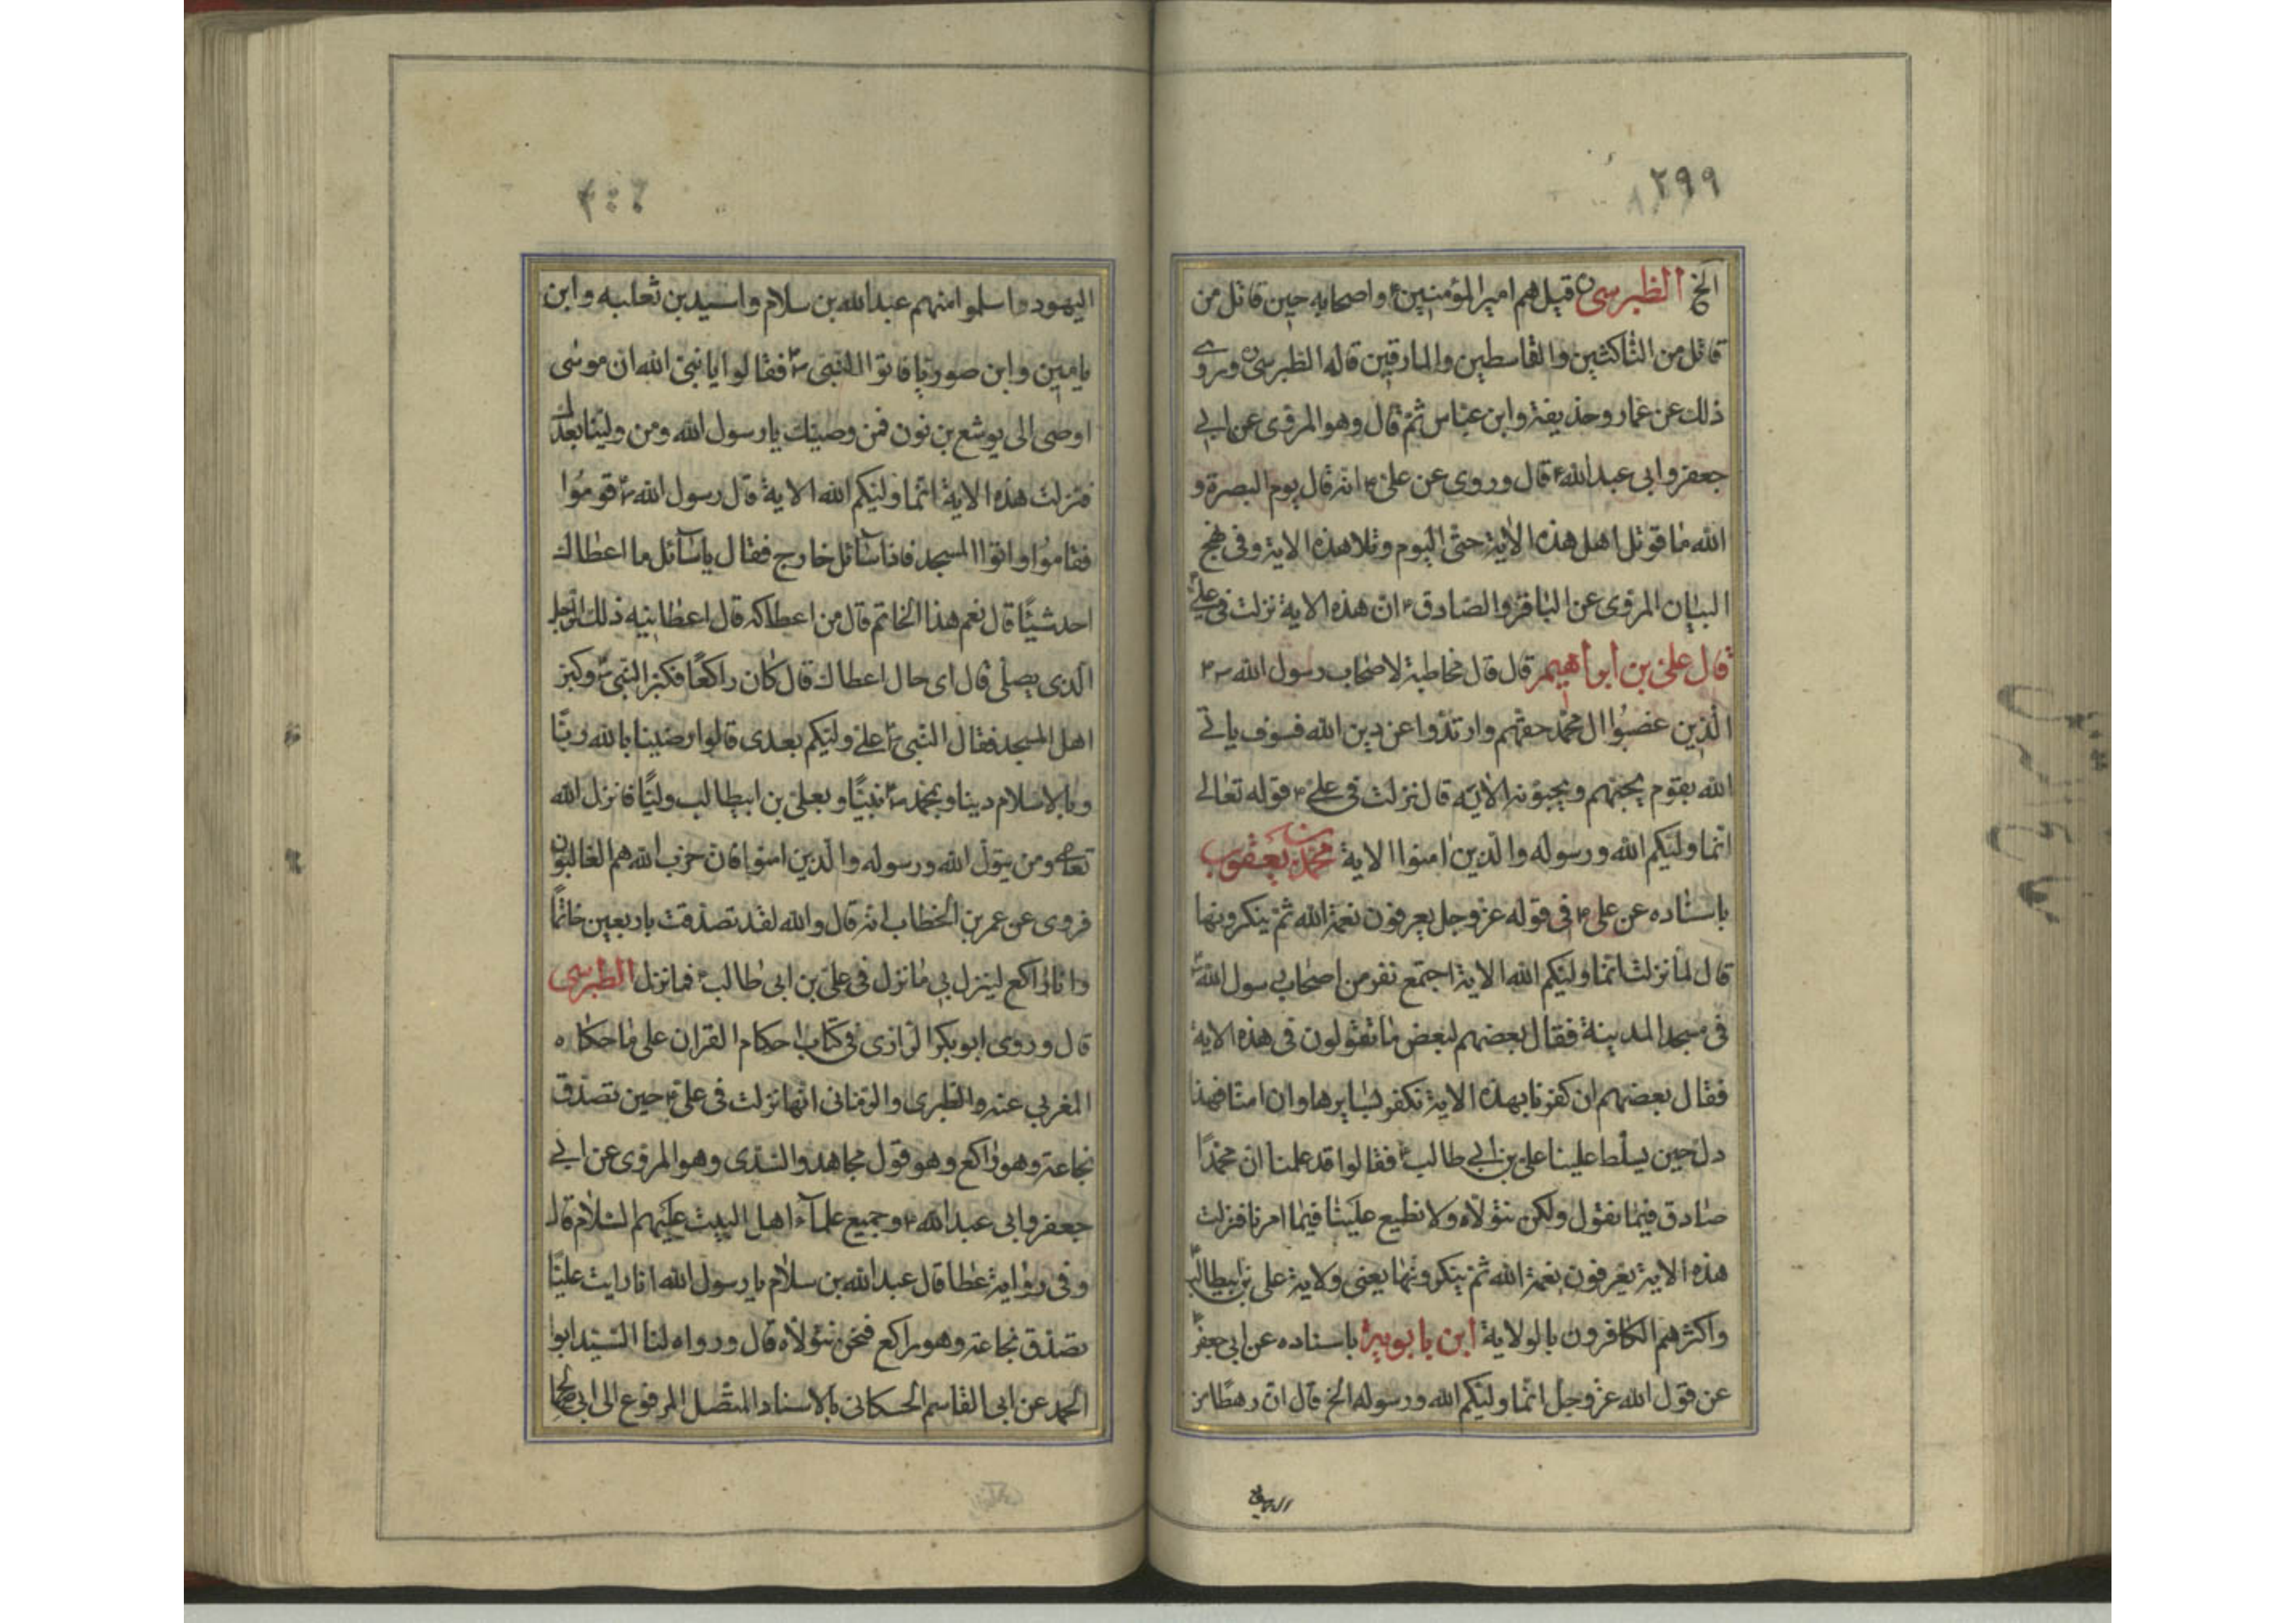 ٢٩٩
الخ الطبرسی قیل هم امیر المؤمنین ع واصحابه حین قاتل من
قاتل من الناکثین والقاسطین والمارقین قاله الطبرسی وروی
ذلك عن عمار وحذیفة وابن عباس ثم قال وهو المروی عن ابی
جعفر وابی عبدالله ع قال وروی عن علی ع انه قال یوم البصرة و
الله ما قوتل اهل هذه الایة حتی الیوم وتلا هذه الایة وفی نهج
البیان المروی عن الباقر والصادق ع ان هذه الایة نزلت فی علی
قال علی بن ابراهیم قال قال مخاطبة لاصحاب رسول الله ص
الذین غصبوا ال محمد حقهم وارتدوا عن دین الله فسوف یاتی
الله بقوم یحبهم ویحبونه الایة قال نزلت فی علی ع قوله تعالی
انما ولیکم الله ورسوله والذین امنوا الایة محمد بن یعقوب
باسناده عن علی ع فی قوله عزوجل یعرفون نعمة الله ثم ینکرونها
قال لما نزلت انما ولیکم الله الایة اجتمع نفر من اصحاب رسول الله
فی مسجد المدینة فقال بعضهم لبعض ما تقولون فی هذه الایة
فقال بعضهم ان کفرنا بهذه الایة نکفر بسایرها وان امنا فهذا
دل حین یسلط علینا علی بن ابی طالب ع فقالوا قد علمنا ان محمدا
صادق فیما یقول ولکن نتولاه ولا نطیع علیا فیما امرنا فنزلت
هذه الایة یعرفون نعمة الله ثم ینکرونها یعنی ولایة علی بن ابیطالب
واکثرهم الکافرون بالولایة ابن بابویه باسناده عن ابی جعفر
عن قول الله عزوجل انما ولیکم الله ورسوله الخ قال ان رهطا من
الیهود
الیهود واسلموا منهم عبدالله بن سلام واسید بن ثعلبه وابن
یامین وابن صوریا فاتوا النبی ص فقالوا یا نبی الله ان موسی
اوصی الی یوشع بن نون فمن وصیك یا رسول الله ومن ولینا بعدك
فنزلت هذه الایة انما ولیکم الله الایة قال رسول الله ص قوموا
فقاموا واتوا المسجد فاذا سائل خارج فقال یا سائل ما اعطاك
احد شیئا قال نعم هذا الخاتم قال من اعطاکه قال اعطانیه ذلك الرجل
الذی یصلی قال ای حال اعطاك قال کان راکعا فکبر النبی ص وکبر
اهل المسجد فقال النبی ص علی ولیکم بعدی قالوا رضینا بالله ربا
وبالاسلام دینا وبمحمد ص نبیا وبعلی بن ابیطالب ولیا فانزل الله
تعالی ومن یتول الله ورسوله والذین امنوا فان حزب الله هم الغالبون
فروی عن عمر بن الخطاب انه قال والله لقد تصدقت باربعین خاتما
وانا راکع لینزل بی ما نزل فی علی بن ابی طالب ع فما نزل الطبرسی
قال وروی ابوبکر الرازی فی کتاب احکام القران علی ما حکاه
المغربی عنه والطبری والرمانی انها نزلت فی علی ع حین تصدق
بخاتمه وهو راکع وهو قول مجاهد والسدی وهو المروی عن ابی
جعفر وابی عبدالله ع وجمیع علمآء اهل البیت علیهم السلام قال
وفی روایة عطا قال عبدالله بن سلام یا رسول الله انا رایت علیا
تصدق بخاتمه وهو راکع فنحن نتولاه قال ورواه لنا السید ابوا
الحمد عن ابی القاسم الحسکانی بالاسناد المتصل المرفوع الی ابی صالح